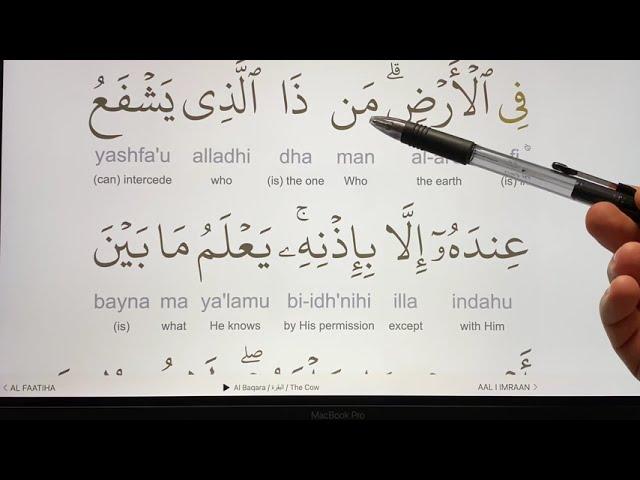 فِى ٱلْأَرْضِ ۗ مَن ذَا ٱلَّذِى يَشْفَعُ
yashfa'u alladhi dha man
(can) intercede who (is) the one Who the earth
عِندَهُۥٓ إِلَّا بِإِذْنِهِۦ ۚ يَعْلَمُ مَا بَيْنَ
bayna ma ya'lamu bi-idh'nihi illa indahu
(is) what He knows by His permission except with Him
< AL FAATIHA ▶ Al Baqara / البقرة / The Cow AAL I IMRAAN >
MacBook Pro